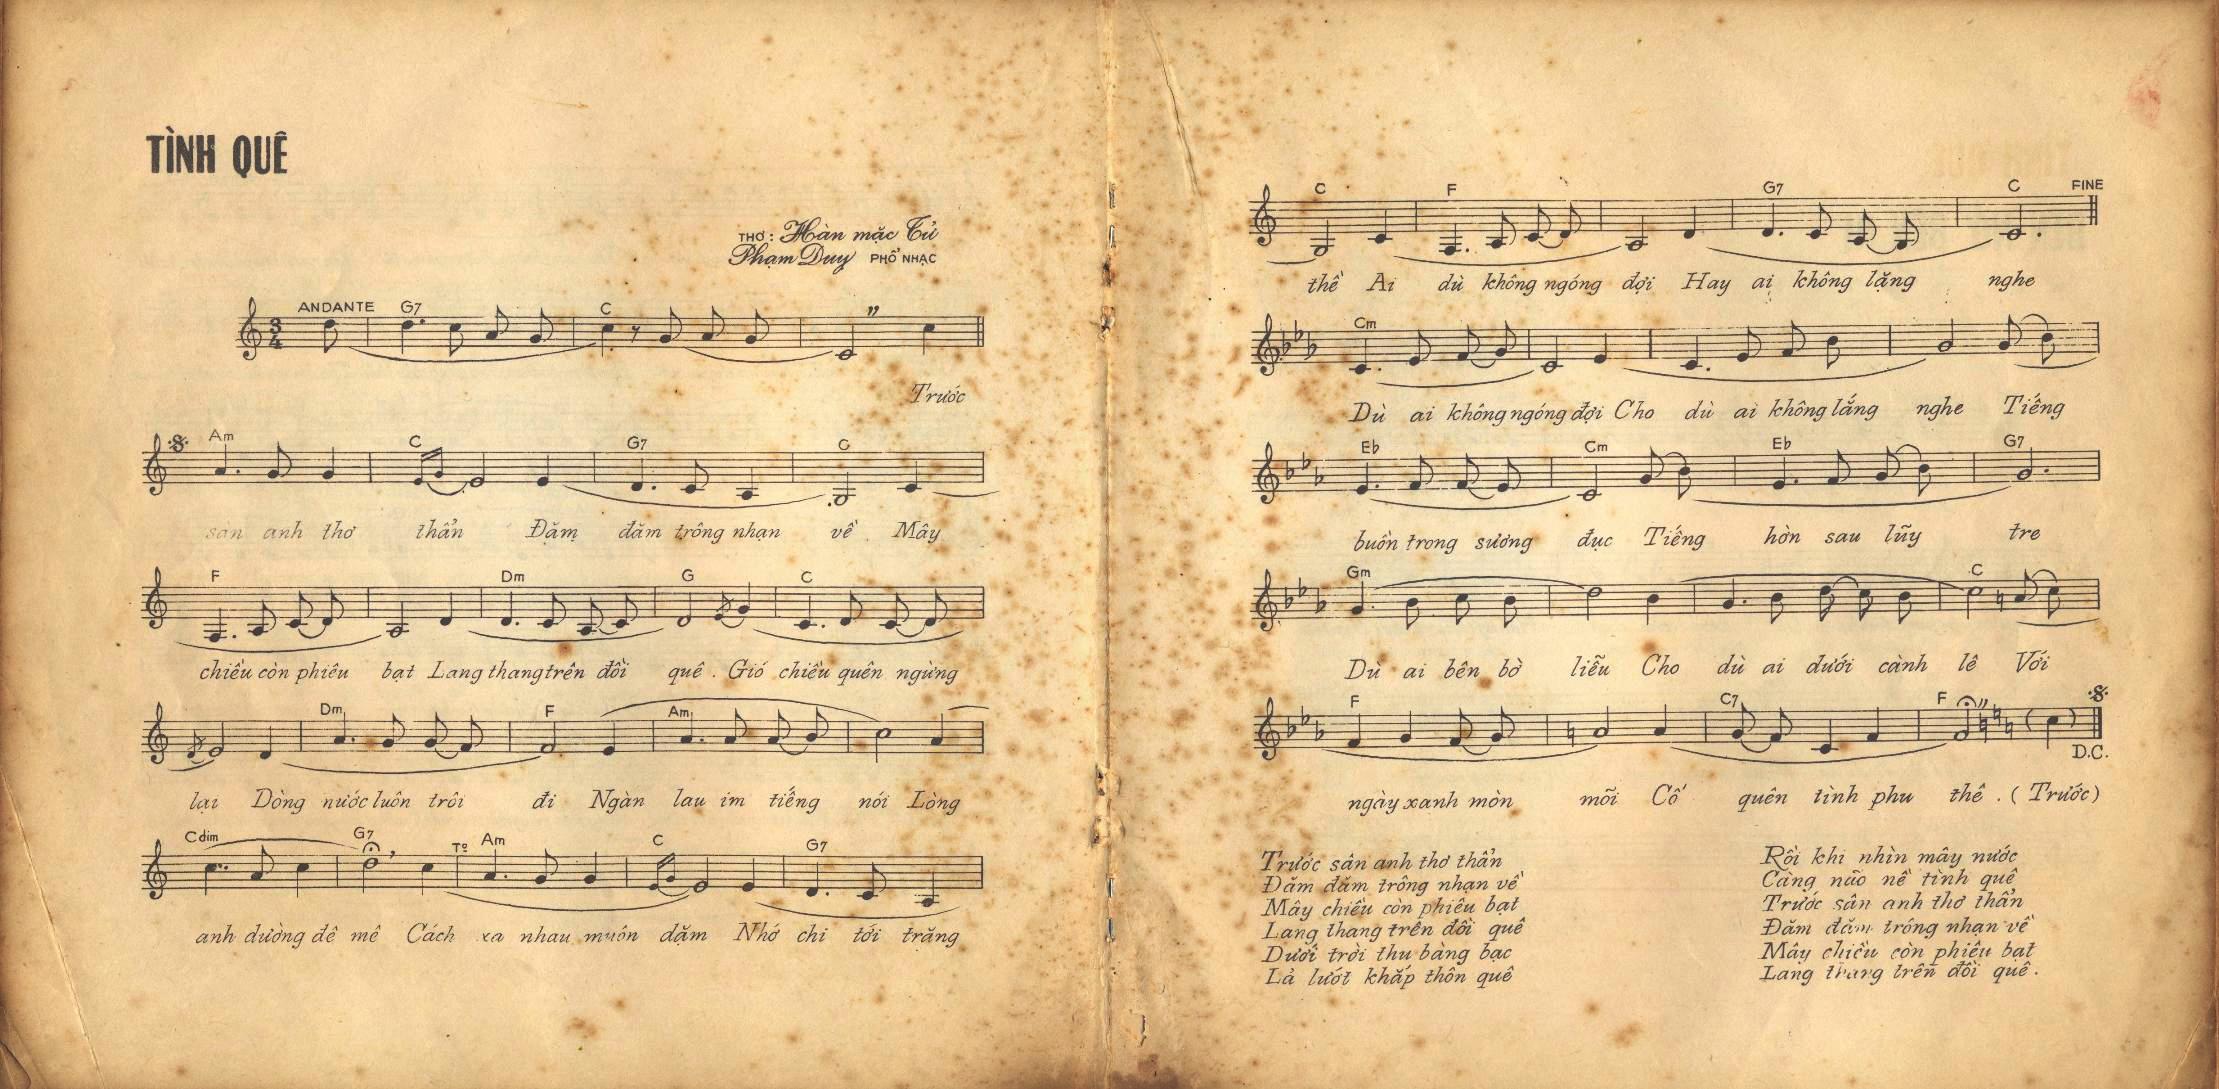 TÌNH QUÊ
THƠ: Hàn mặc Tử
Phạm Duy PHỔ NHẠC
ANDANTE G7 C
3 4
Trước
Am C G7 C
sân anh thơ thẩn Đăm đăm trông nhạn về Mây
F Dm G C
chiều còn phiêu bạt Lang thang trên đồi quê. Gió chiều quên ngừng
Dm F Am
lại Dòng nước luôn trôi đi Ngàn lau im tiếng nói Lòng
Cdim G7 To Am C G7
anh dường đê mê Cách xa nhau muôn dặm Nhớ chi tới trăng
C F G7 C FINE
thề Ai dù không ngóng đợi Hay ai không lặng nghe
Cm
Dù ai không ngóng đợi Cho dù ai không lắng nghe Tiếng
Eb Cm Eb G7
buồn trong sương đục Tiếng hờn sau lũy tre
Gm C
Dù ai bên bờ liễu Cho dù ai dưới cành lê Với
F C7 F
D.C.
ngày xanh mòn mỏi Cố quên tình phu thê. (Trước)
Trước sân anh thơ thẩn
Đăm đăm trông nhạn về
Mây chiều còn phiêu bạt
Lang thang trên đồi quê
Dưới trời thu bàng bạc
Lả lướt khắp thôn quê
Rồi khi nhìn mây nước
Càng não nề tình quê
Trước sân anh thơ thẩn
Đăm đăm trông nhạn về
Mây chiều còn phiêu bạt
Lang thang trên đồi quê.